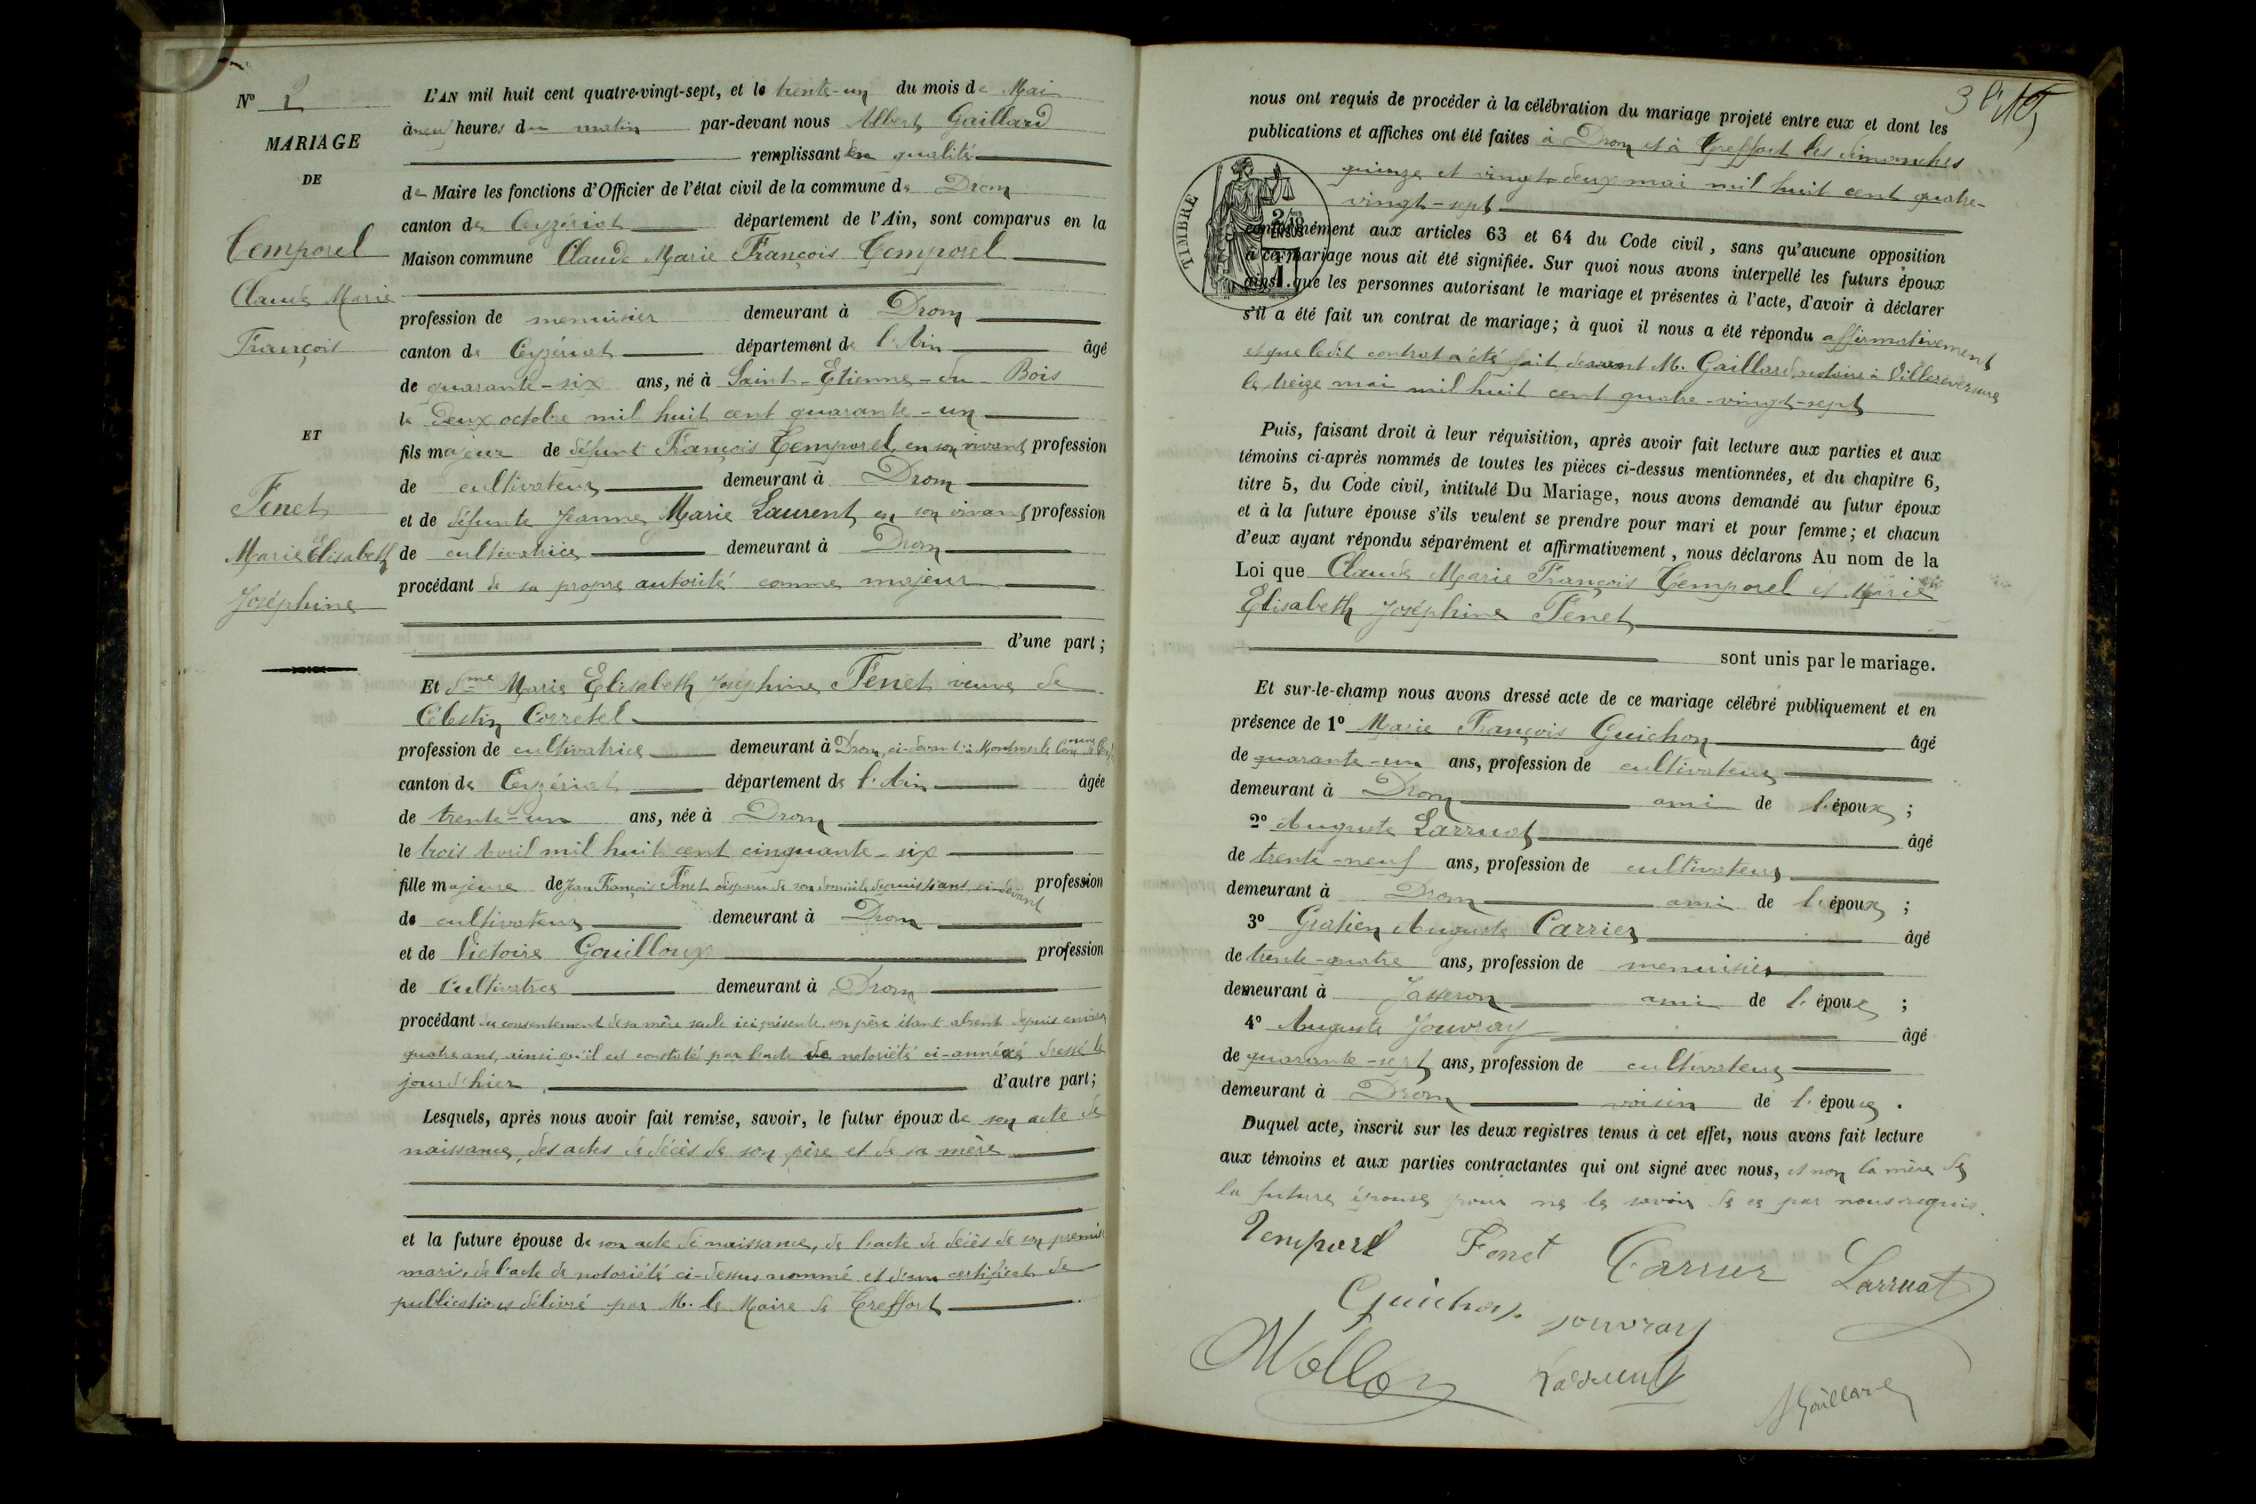 N° 2
MARIAGE
DE
Temporel
Claude Marie
François
ET
Fenet
Marie Elisabeth
Joséphine
L'AN mil huit cent quatre-vingt-sept, et le trente-un du mois de Mai
à neuf heures du matin par-devant nous Albert Gaillard
remplissant en qualité
de Maire les fonctions d'Officier de l'état civil de la commune de Drom
canton de Ceyzériat département de l'Ain, sont comparus en la
Maison commune Claude Marie François Temporel
profession de menuisier demeurant à Drom
canton de Ceyzériat département de l'Ain âgé
de quarante-six ans, né à Saint-Etienne-du-Bois
le deux octobre mil huit cent quarante-un
fils majeur de défunt François Temporel, en son vivant profession
de cultivateur demeurant à Drom
et de défunte Jeanne Marie Laurent, en son vivant profession
de cultivatrice demeurant à Drom
procédant de sa propre autorité comme majeur
d'une part;
Et dme Marie Elisabeth Joséphine Fenet veuve de
Célestin Corretel
profession de cultivatrice demeurant à Drom, ci-devant à Montmerle
canton de Ceyzériat département de l'Ain âgée
de trente-un ans, née à Drom
le trois Avril mil huit cent cinquante-six
fille majeure de Jean François Fenet disparu de son domicile depuis 4 ans ci-devant profession
de cultivateur demeurant à Drom
et de Victoire Gouilloux profession
de Cultivatrice demeurant à Drom
procédant du consentement de sa mère seule ici présente, son père étant absent depuis environ
quatre ans, ainsi qu'il est constaté par l'acte de notoriété ci-annéxé dressé le
jour d'hier d'autre part;
Lesquels, après nous avoir fait remise, savoir, le futur époux de son acte de
naissance, des actes de décès de son père et de sa mère
et la future épouse de son acte de naissance, de l'acte de décès de son premier
mari, de l'acte de notoriété ci-dessus nommé et d'un certificat de
publications délivré par M. le Maire de Treffort
nous ont requis de procéder à la célébration du mariage projeté entre eux et dont les
publications et affiches ont été faites à Drom et à Treffort les dimanches
quinze et vingt-deux mai mil huit cent quatre-
vingt-sept
TIMBRE
conformément aux articles 63 et 64 du Code civil, sans qu'aucune opposition
à ce mariage nous ait été signifiée. Sur quoi nous avons interpellé les futurs époux
ainsi que les personnes autorisant le mariage et présentes à l'acte, d'avoir à déclarer
s'il a été fait un contrat de mariage; à quoi il nous a été répondu affirmativement
et que ledit contrat a été fait devant M. Gaillard, notaire à Villereversure
le treize mai mil huit cent quatre-vingt-sept
Puis, faisant droit à leur réquisition, après avoir fait lecture aux parties et aux
témoins ci-après nommés de toutes les pièces ci-dessus mentionnées, et du chapitre 6,
titre 5, du Code civil, intitulé Du Mariage, nous avons demandé au futur époux
et à la future épouse s'ils veulent se prendre pour mari et pour femme; et chacun
d'eux ayant répondu séparément et affirmativement, nous déclarons Au nom de la
Loi que Claude Marie François Temporel et Marie
Elisabeth Joséphine Fenet
sont unis par le mariage.
Et sur-le-champ nous avons dressé acte de ce mariage célébré publiquement et en
présence de 1° Marie François Guichon âgé
de quarante-un ans, profession de cultivateur
demeurant à Drom ami de l'époux;
2° Auguste Larruat âgé
de trente-neuf ans, profession de cultivateur
demeurant à Drom ami de l'époux;
3° Gratien Auguste Carrier âgé
de trente-quatre ans, profession de menuisier
demeurant à Jasseron ami de l'épouse;
4° Auguste Jouvray âgé
de quarante-sept ans, profession de cultivateur
demeurant à Drom voisin de l'épouse.
Duquel acte, inscrit sur les deux registres tenus à cet effet, nous avons fait lecture
aux témoins et aux parties contractantes qui ont signé avec nous, et non la mère de
la future épouse pour ne le savoir de ce par nous requis.
Temporel Fenet Carrier Larruat
Guichon Jouvray
Mollon
AGaillard